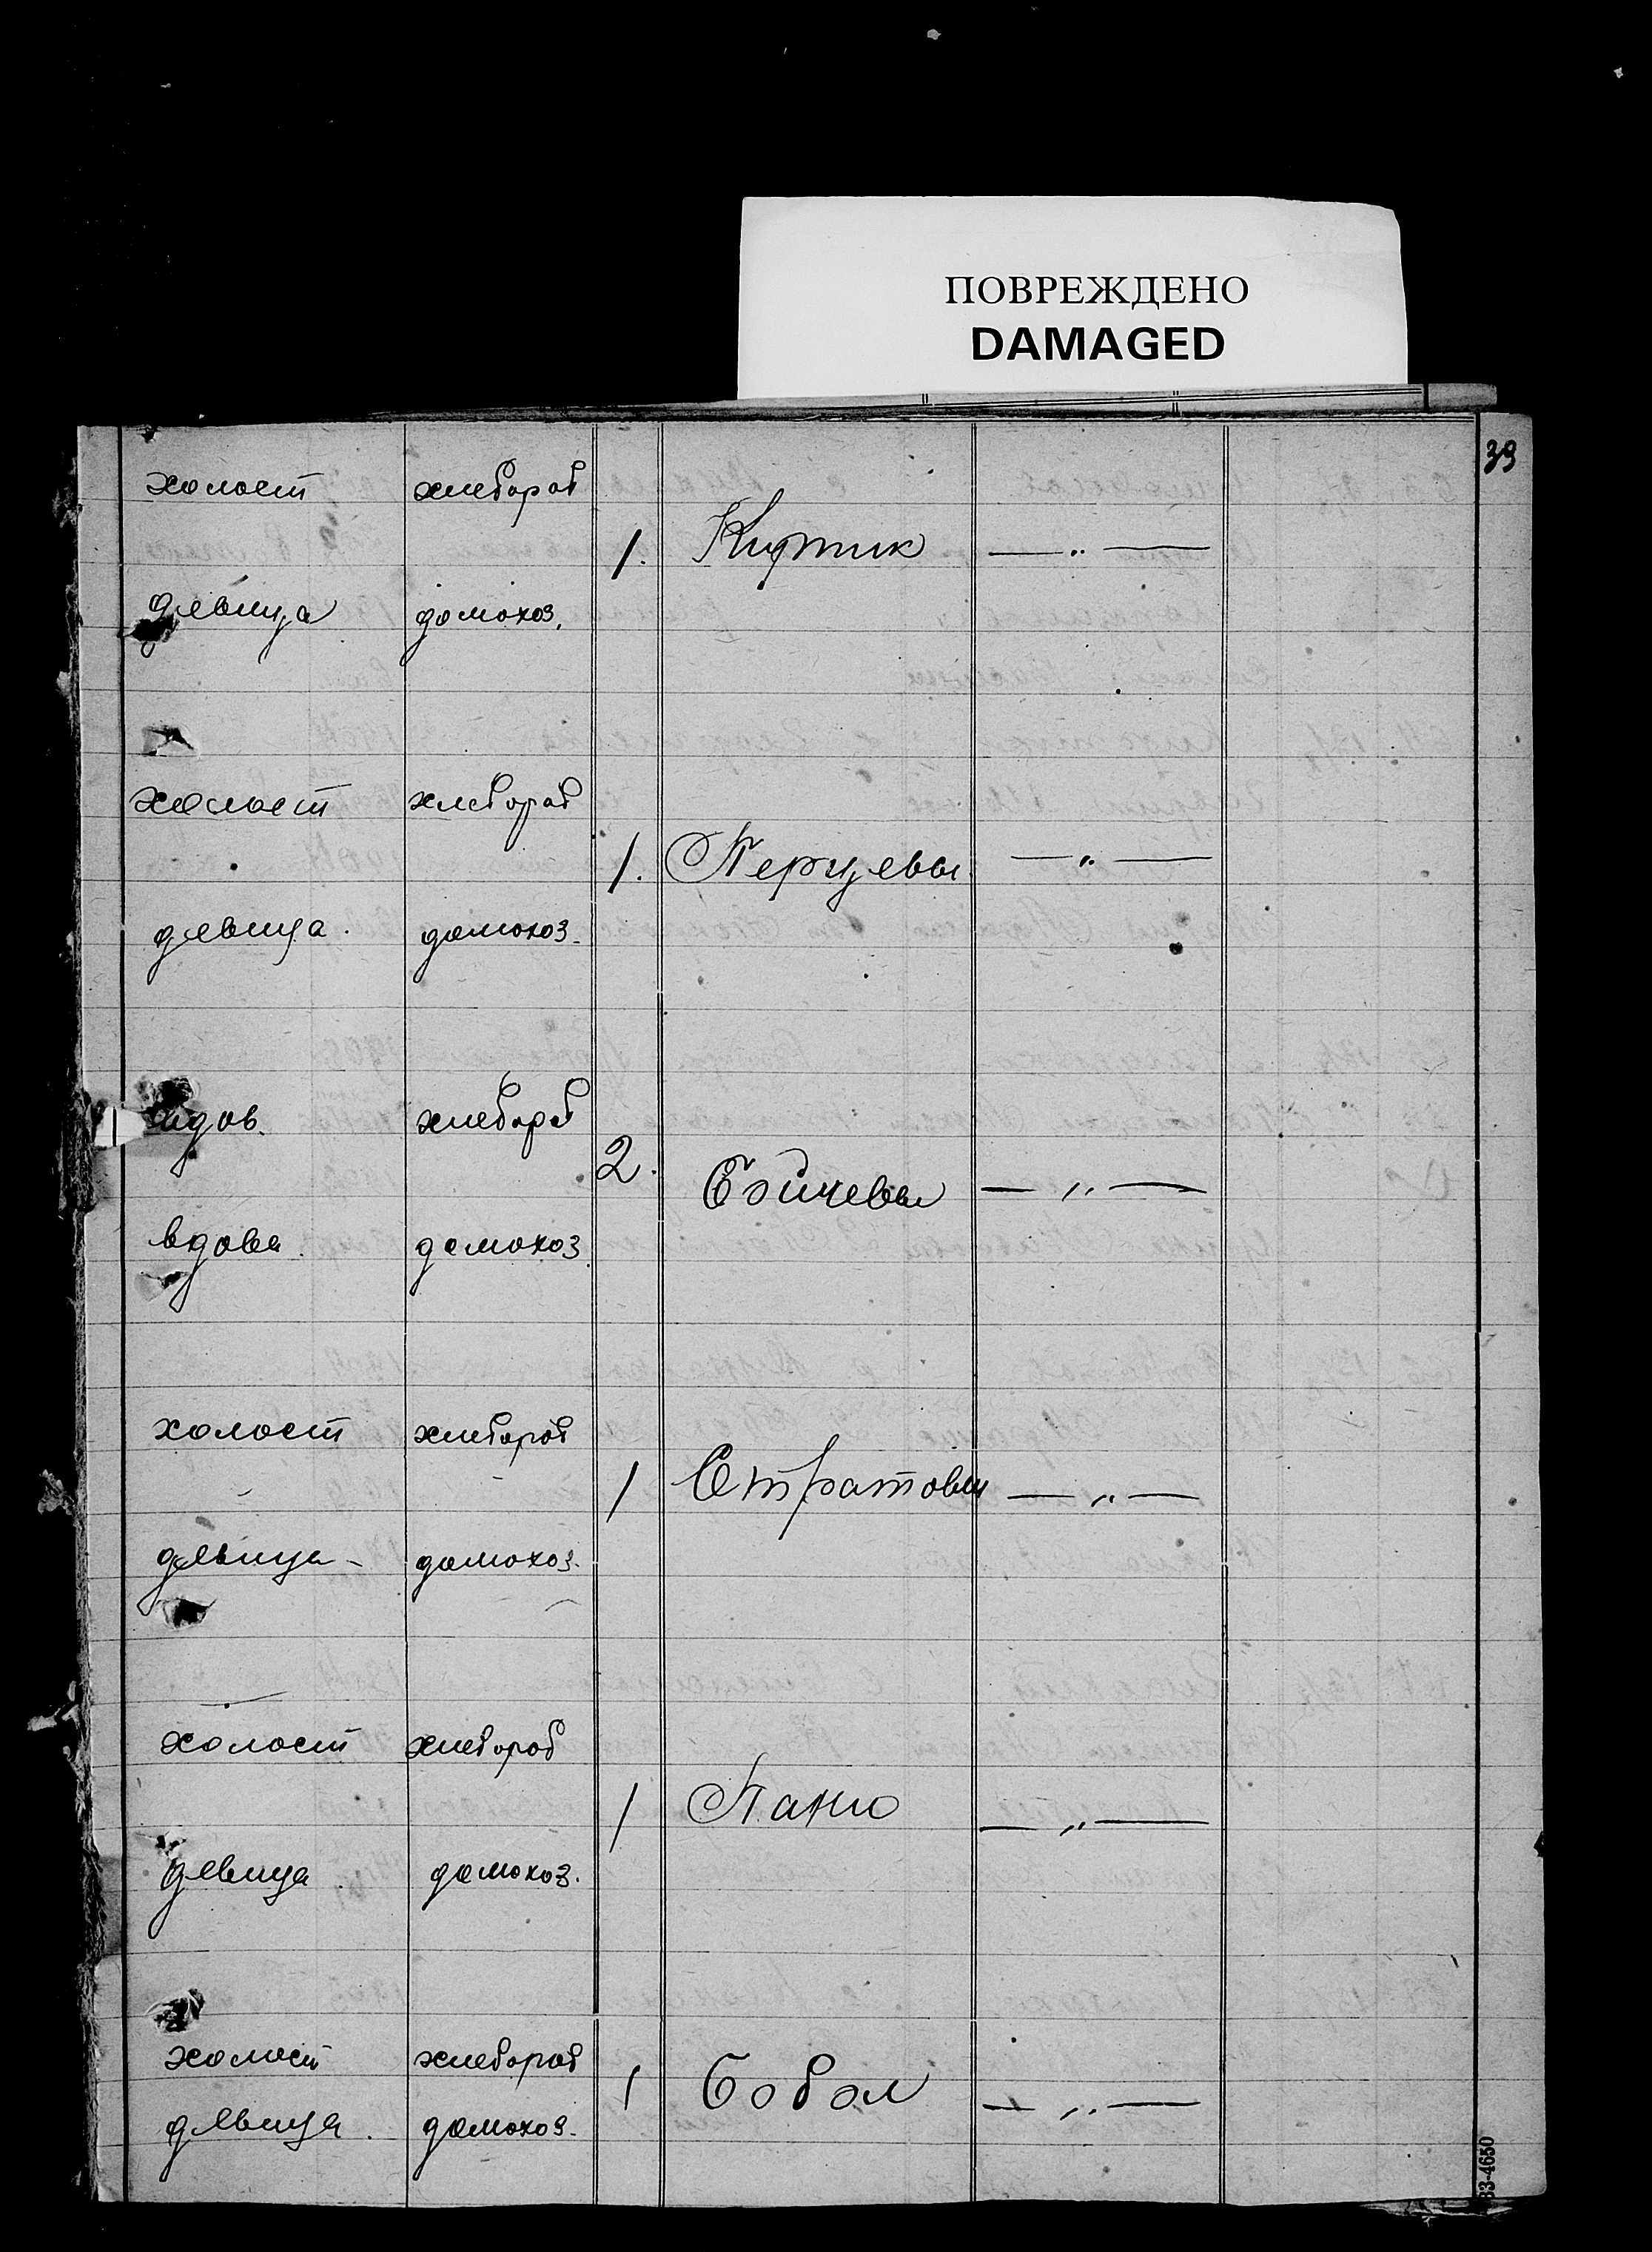 ПОВРЕЖДЕНО
DAMAGED
39
холост хлебороб
1. Киртик — „ —
девица домохоз.
холост хлебороб
1. Перцевы — „ —
девица. домохоз.
вдов. хлебороб
2. — „ —
вдова. домохоз
холост хлебороб
1 Стратовы — „ —
девица домохоз.
холост хлебороб
1 Паню — „ —
девица. домохоз.
холост хлебороб
1 Бобол — „ —
девица. домохоз.
33-4650